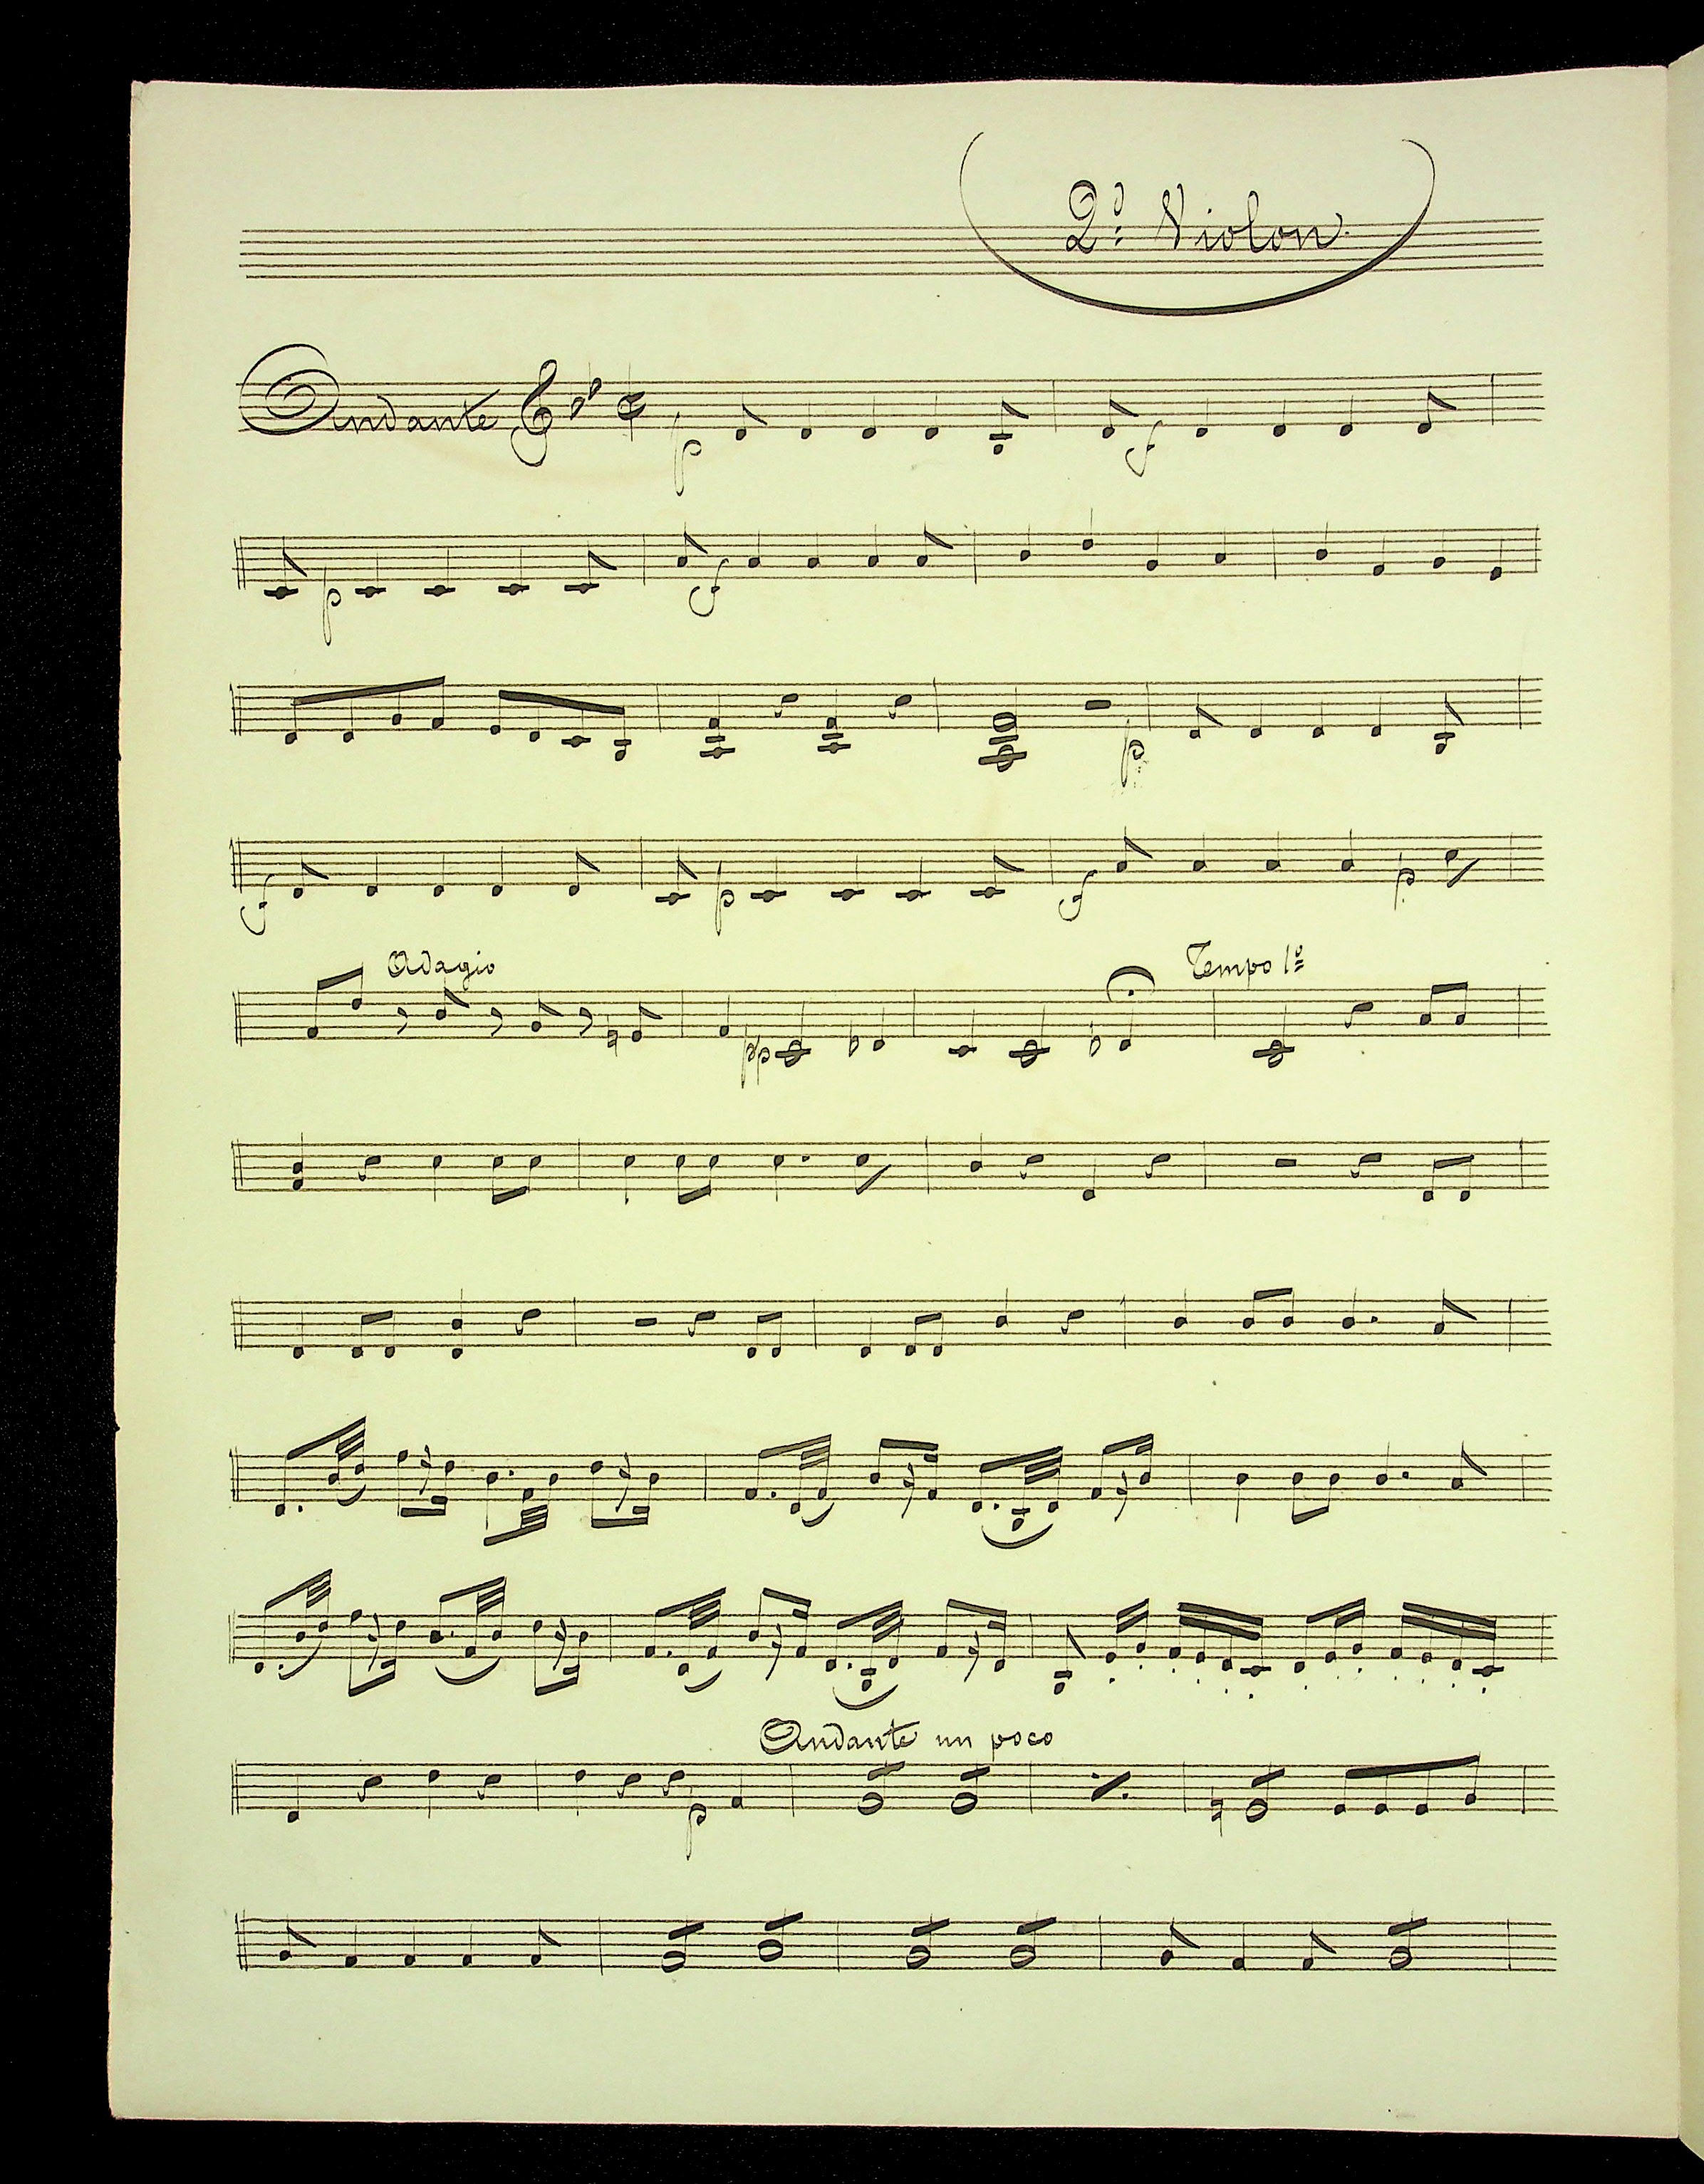 2º Violon.
Andante
p f
p f
p
f p f p
Adagio Tempo 1º
pp
Andante un poco
p